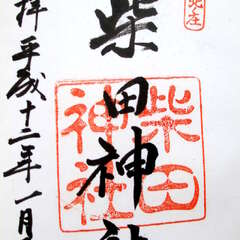 柴田神社
柴田
神社
拝 平成十二年一月